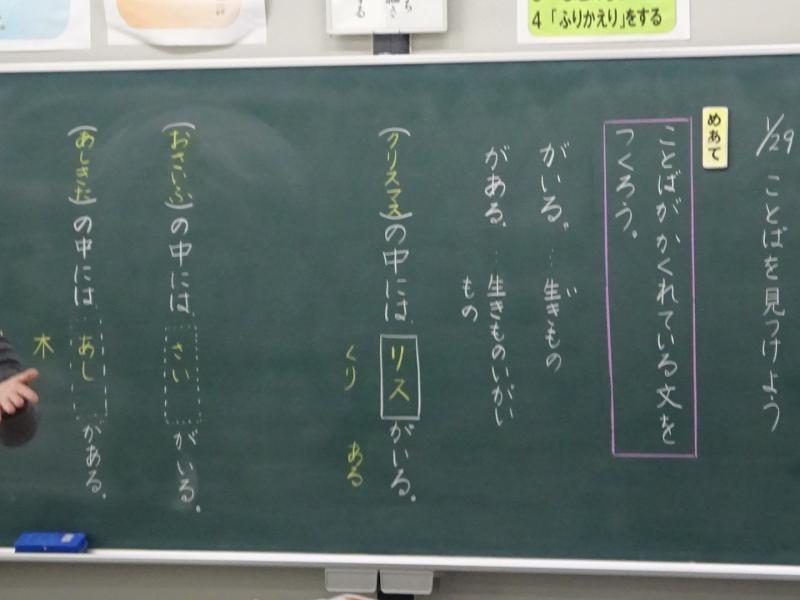 4「ふりかえり」をする
1/29 ことばを見つけよう
めあて
ことばがかくれている文を
つくろう。
がいる。…生きもの
い
がある。…生きものいがい
もの
(クリスマス)の中には リス がいる。
くり ある
(おさいふ)の中には さい がいる。
(あしきた)の中には あし がある。
木